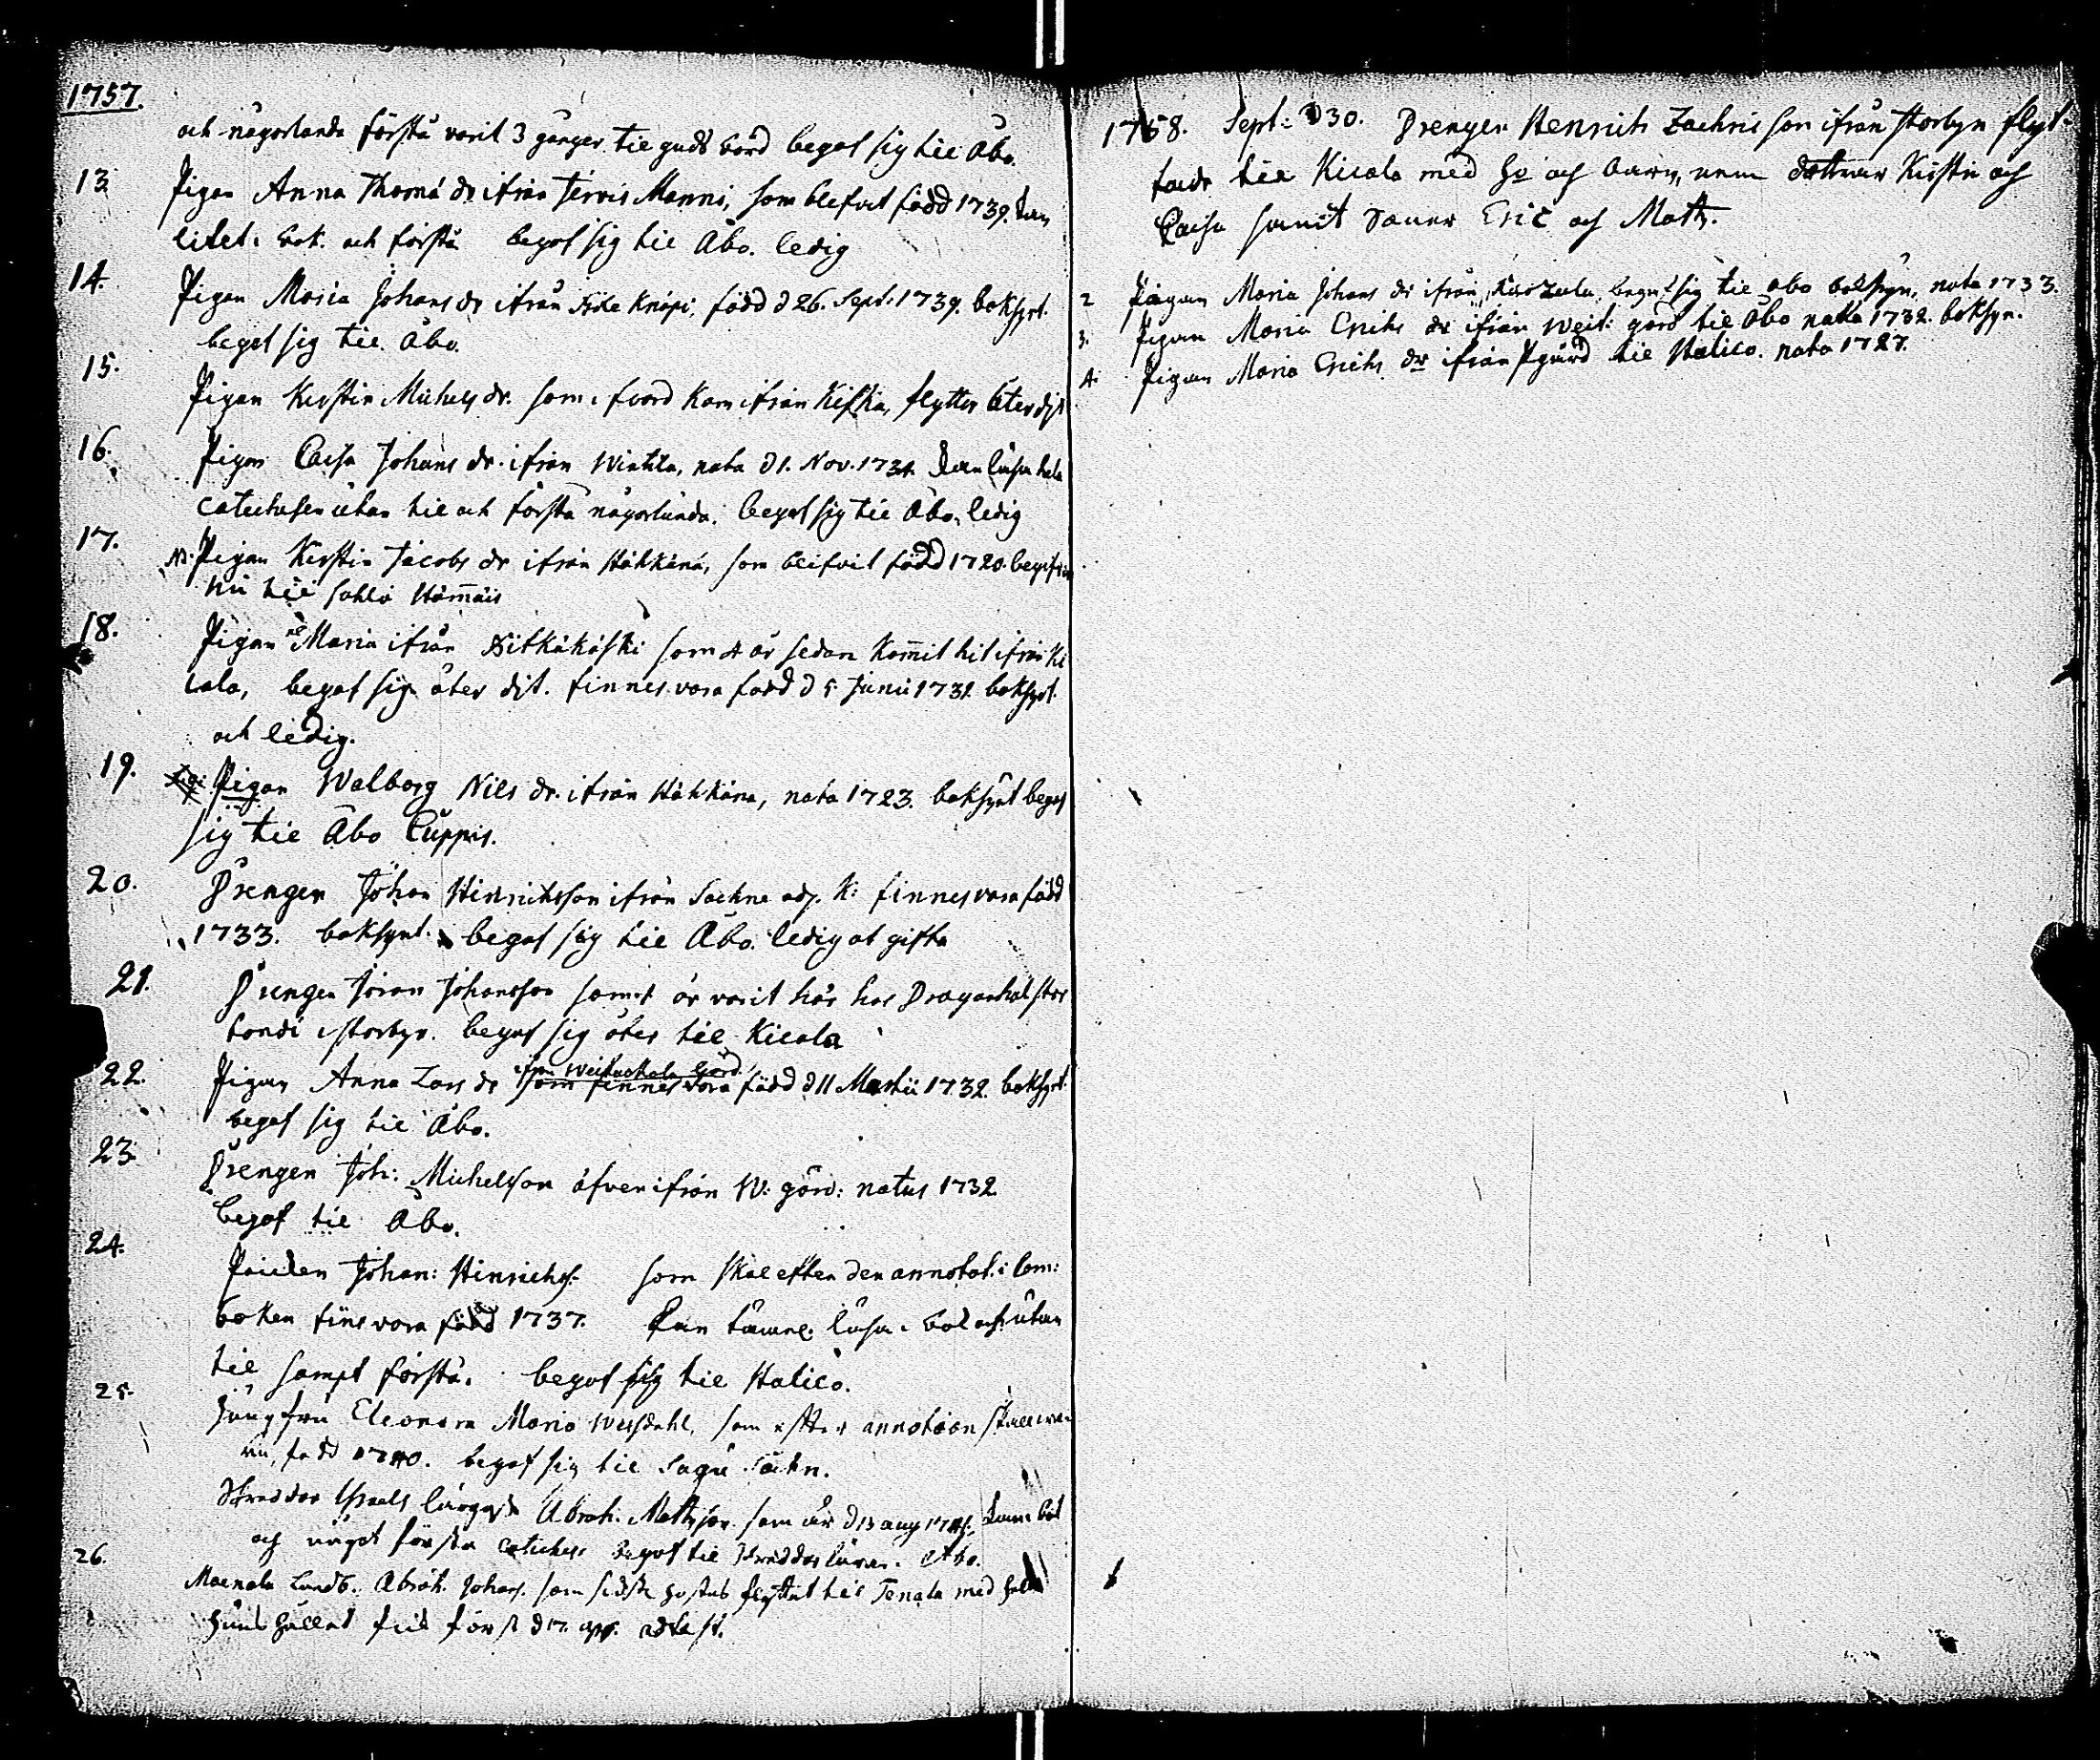 1757.
och någorlunda förstå varit 3 gånger til guds bord begaf sig til Åbo.
13. Pigan Anna Thomæ dr ifrån Jervis Manni, som blefvit född 1739. kan
litet i bok. och förstå begaf sig til Åbo. ledig
14. Pigan Maria Johans dr ifrån Knapi, född d 26. Sept. 1739. boksynt.
begaf sig til Åbo.
15. Pigan Kirstin Michels dr. som i fiord kom ifrån Kiska, flytter åter dijt
16. Pigan Caisa Johans dr. ifrån Wintila, nata d 1. Nov. 1734. kan läsa hela
catechesen utan til och förstå någorlunda. begaf sig til Åbo, ledig
17. Pigan Kirstin Jacobs dr ifrån Häkkänä, som blifvit född 1720. begifver
nu til Sahlo Hämäis
18. Pigan Maria ifrån Pitkäkoski som 4 år sedan kom̄it hit ifrån Ki
cala, begaf sig åter dit. finnes vara född d 5 Junii 1732. boksynt.
och ledig.
19. Pigan Walborg Nils dr. ifrån Häkkäna, nata 1723. boksynt begaf
sig til Åbo Cuppis.
20. Drengen Johan Hinrichsson ifrån Sackne adj. K: finnes vara född
1733. boksynt. begaf sig til Åbo. ledig at gifta
21. Drengen Jöran Johansson som 1 år varit här hos Dragonhalfstor
bondi i storbyn. begaf sig åter til Kicala
22. Pigan Anna Lars dr ifrån Weihuchala Gård
som finnes vara född d 11 Martii 1732. boksynt.
begaf sig til Åbo.
23. Drengen Joh: Michelsson äfven ifrån W: gård: natus 1732
begaf til Åbo.
24. Poicken Johan: Hinrichs. som skal efter den annotat. i Com:
boken fins vara född 1737. Kan läsa i bok och utan
til sampt förstå. begaf sig til Halico.
25. Jungfru Eleonora Maria Wessdahl, som efter annotaon skall wa
ra, född 1740. begaf sig til Sagu Sockn.
Skreddar Israels Abrah. Mattsson. som är d 13 aug kan i bok
och något förstå catichess begaf til Skreddar Åbo.
26. Maenala Landb. Abrah. Johans. som sidste höstas flyttat til Tenala med hela
hushållet fick först d 17. apr. adtest.
1758. Sept: d 30. Drengen Henrich Zachris son ifrån storbyn flyt-
tade til Kicala med hu och barn, nem döttrar Kirstin och
Caisa samt Sauer Eric och Matts.
2 Pigan Maria Johans dr ifrån begaf sig til Åbo boksyn. nata 1733.
3. Pigan Maria Erichs dr ifrån Weit: gård til Åbo nata 1732. boksyn.
4. Pigan Maria Erichs dr ifrån Pgård til Halico. nata 1727.